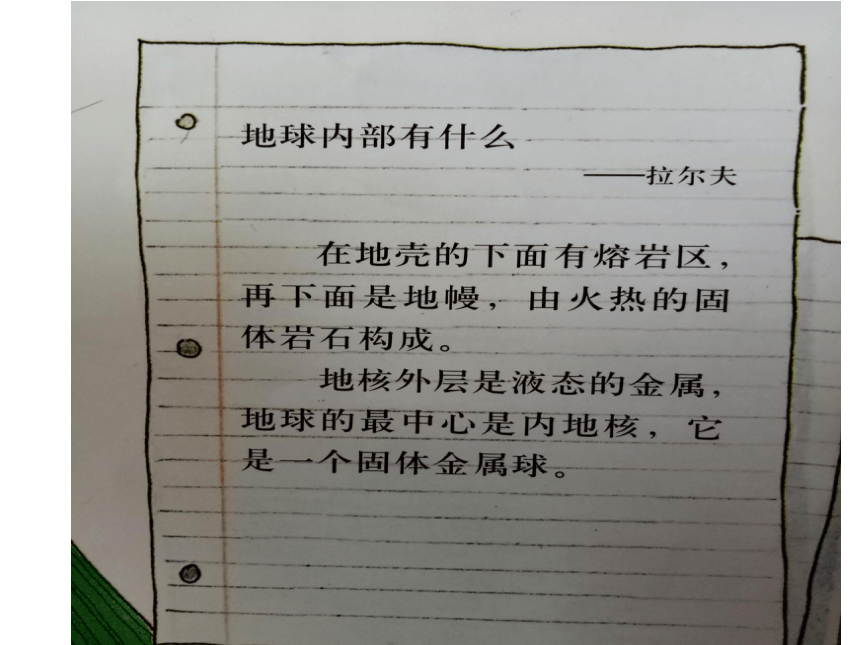 地球内部有什么
——拉尔夫
在地壳的下面有熔岩区，
再下面是地幔，由火热的固
体岩石构成。
地核外层是液态的金属，
地球的最中心是内地核，它
是一个固体金属球。